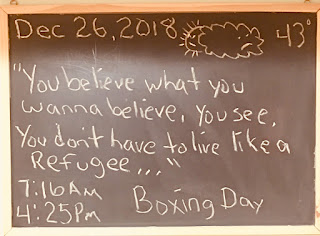 Dec 26, 2018 43°
"You believe what you
wanna believe, You see,
You don't have to live like a
Refugee,,,"
7:16AM
4:25PM Boxing Day